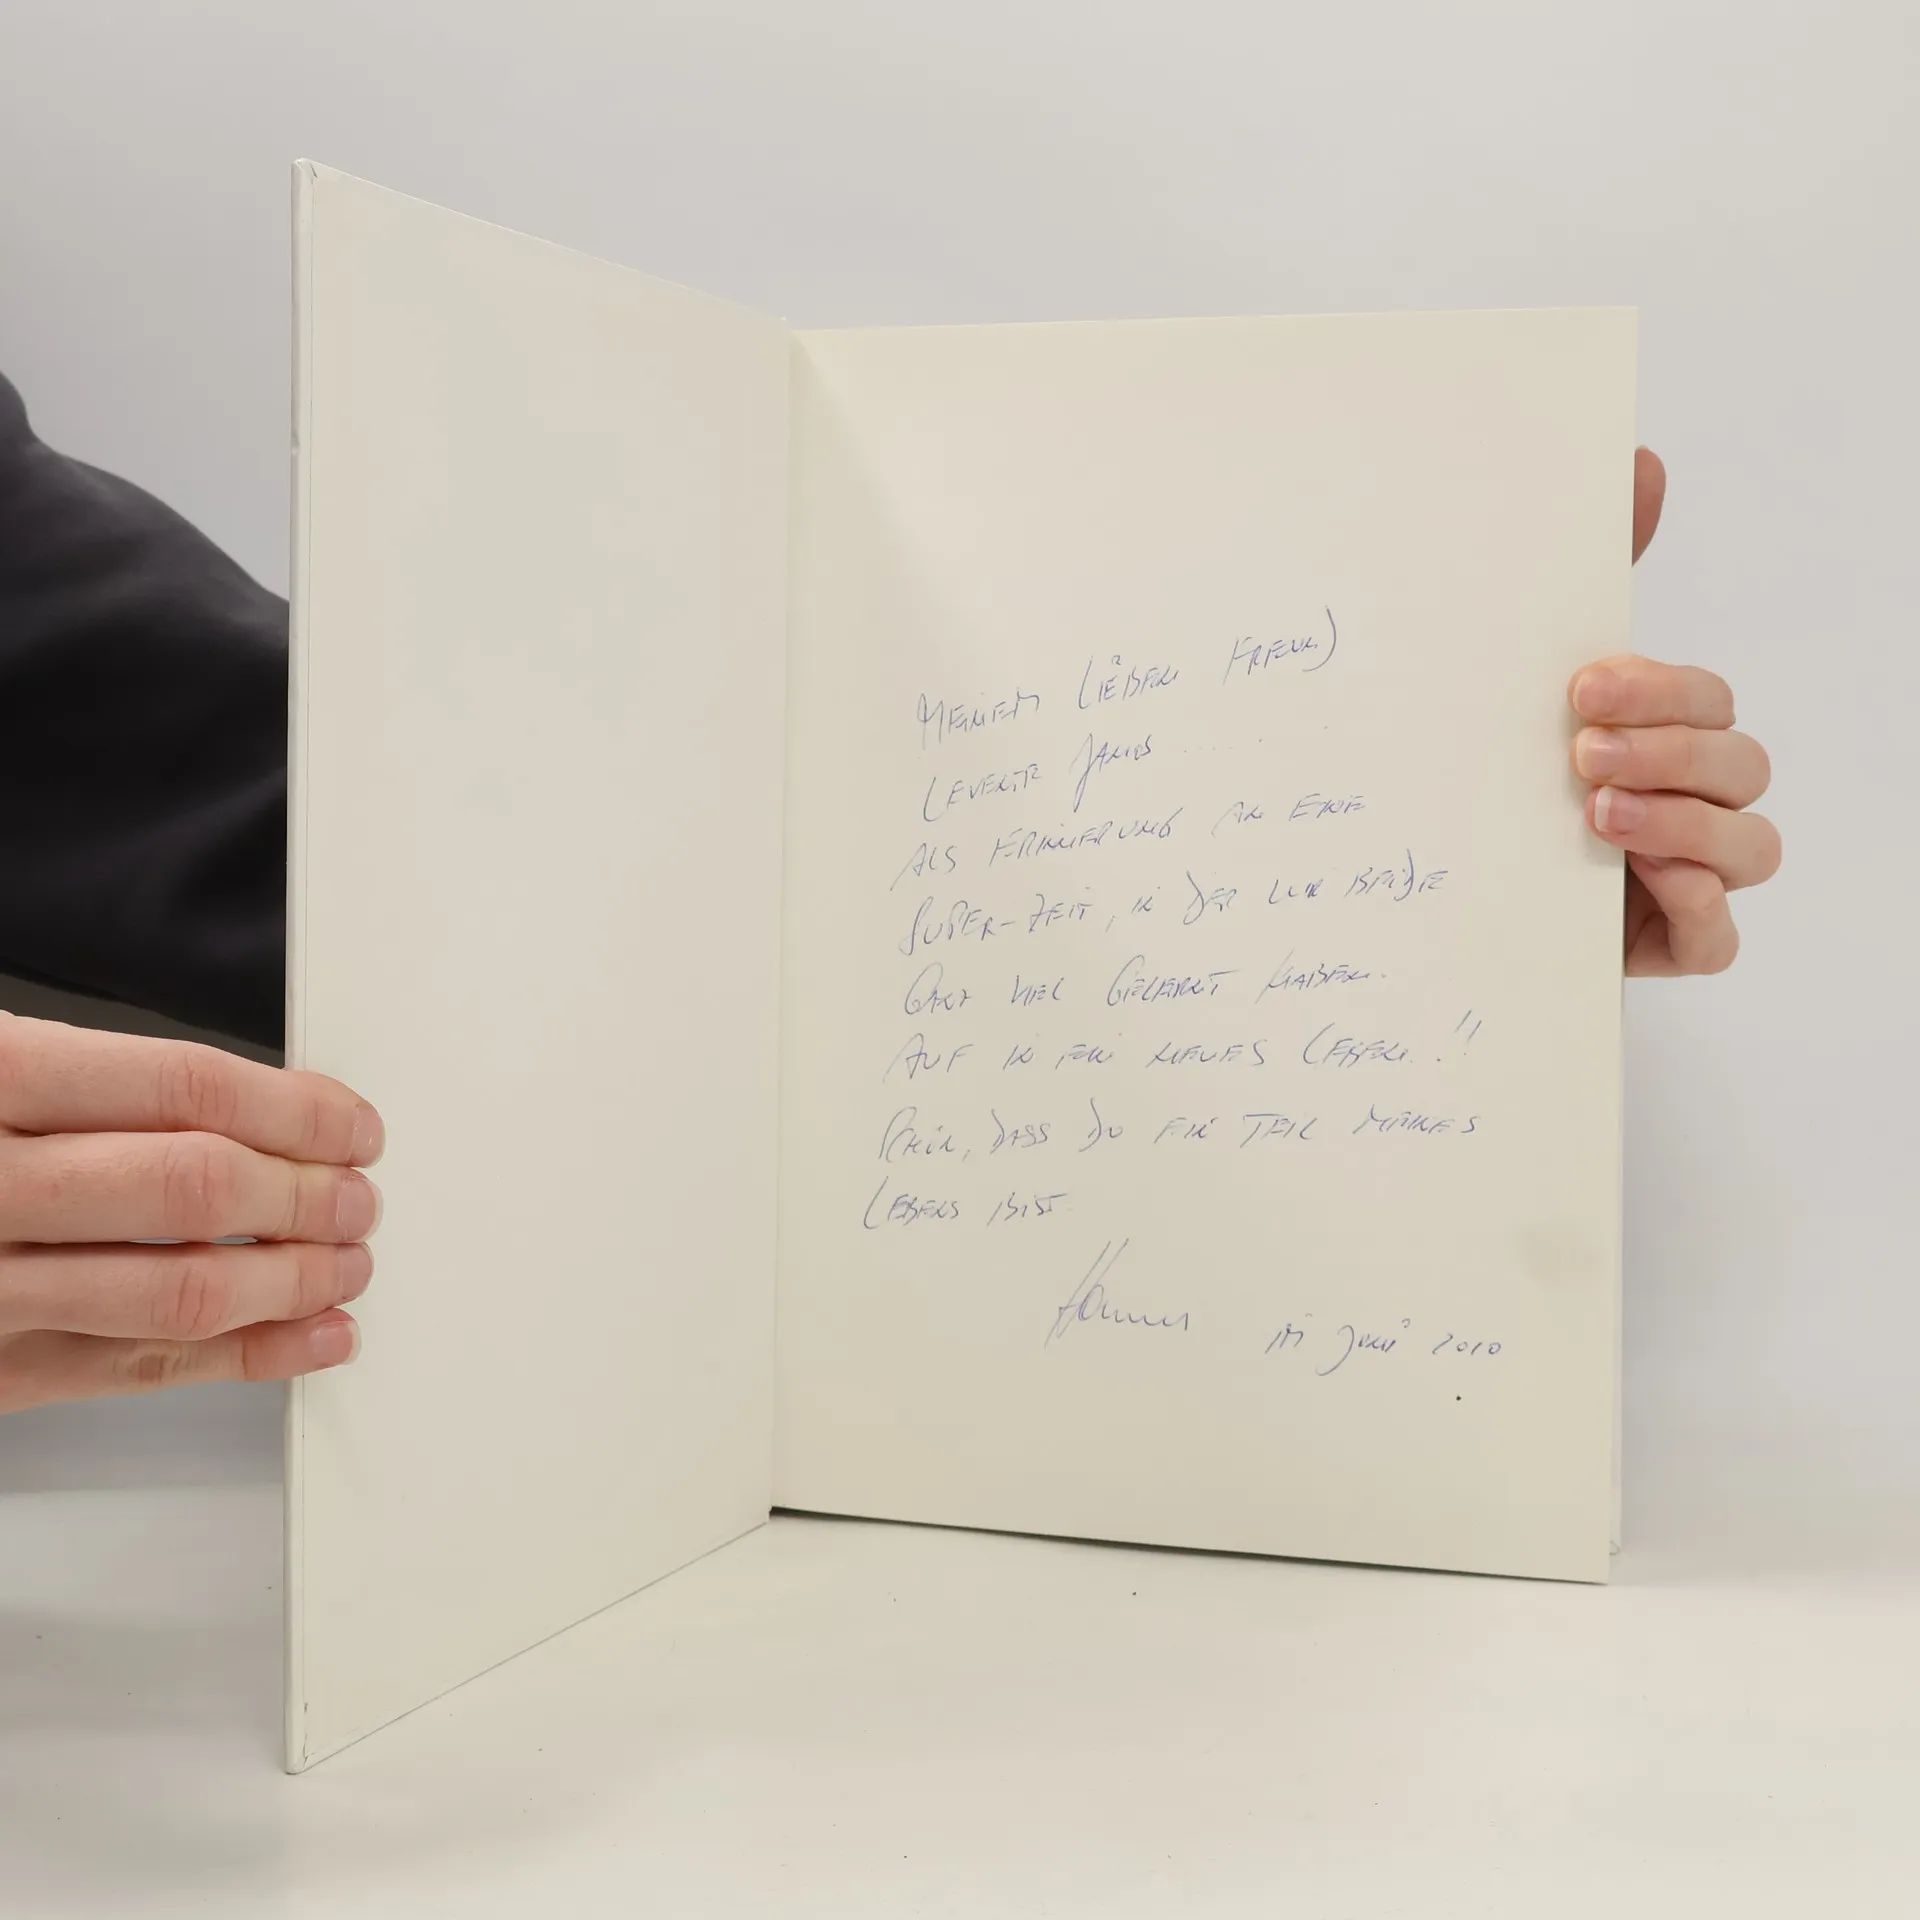 MEINEM LIEBEN FREUND
LEVENTE JANOS .....
ALS ERINNERUNG AN EINE
SUPER-ZEIT, IN DER WIR BEIDE
GANZ VIEL GELERNT HABEN.
AUF IN EIN NEUES LEBEN..!!
SCHÖN, DASS DU EIN TEIL MEINES
LEBENS BIST.
Hannes IM JUNI 2010